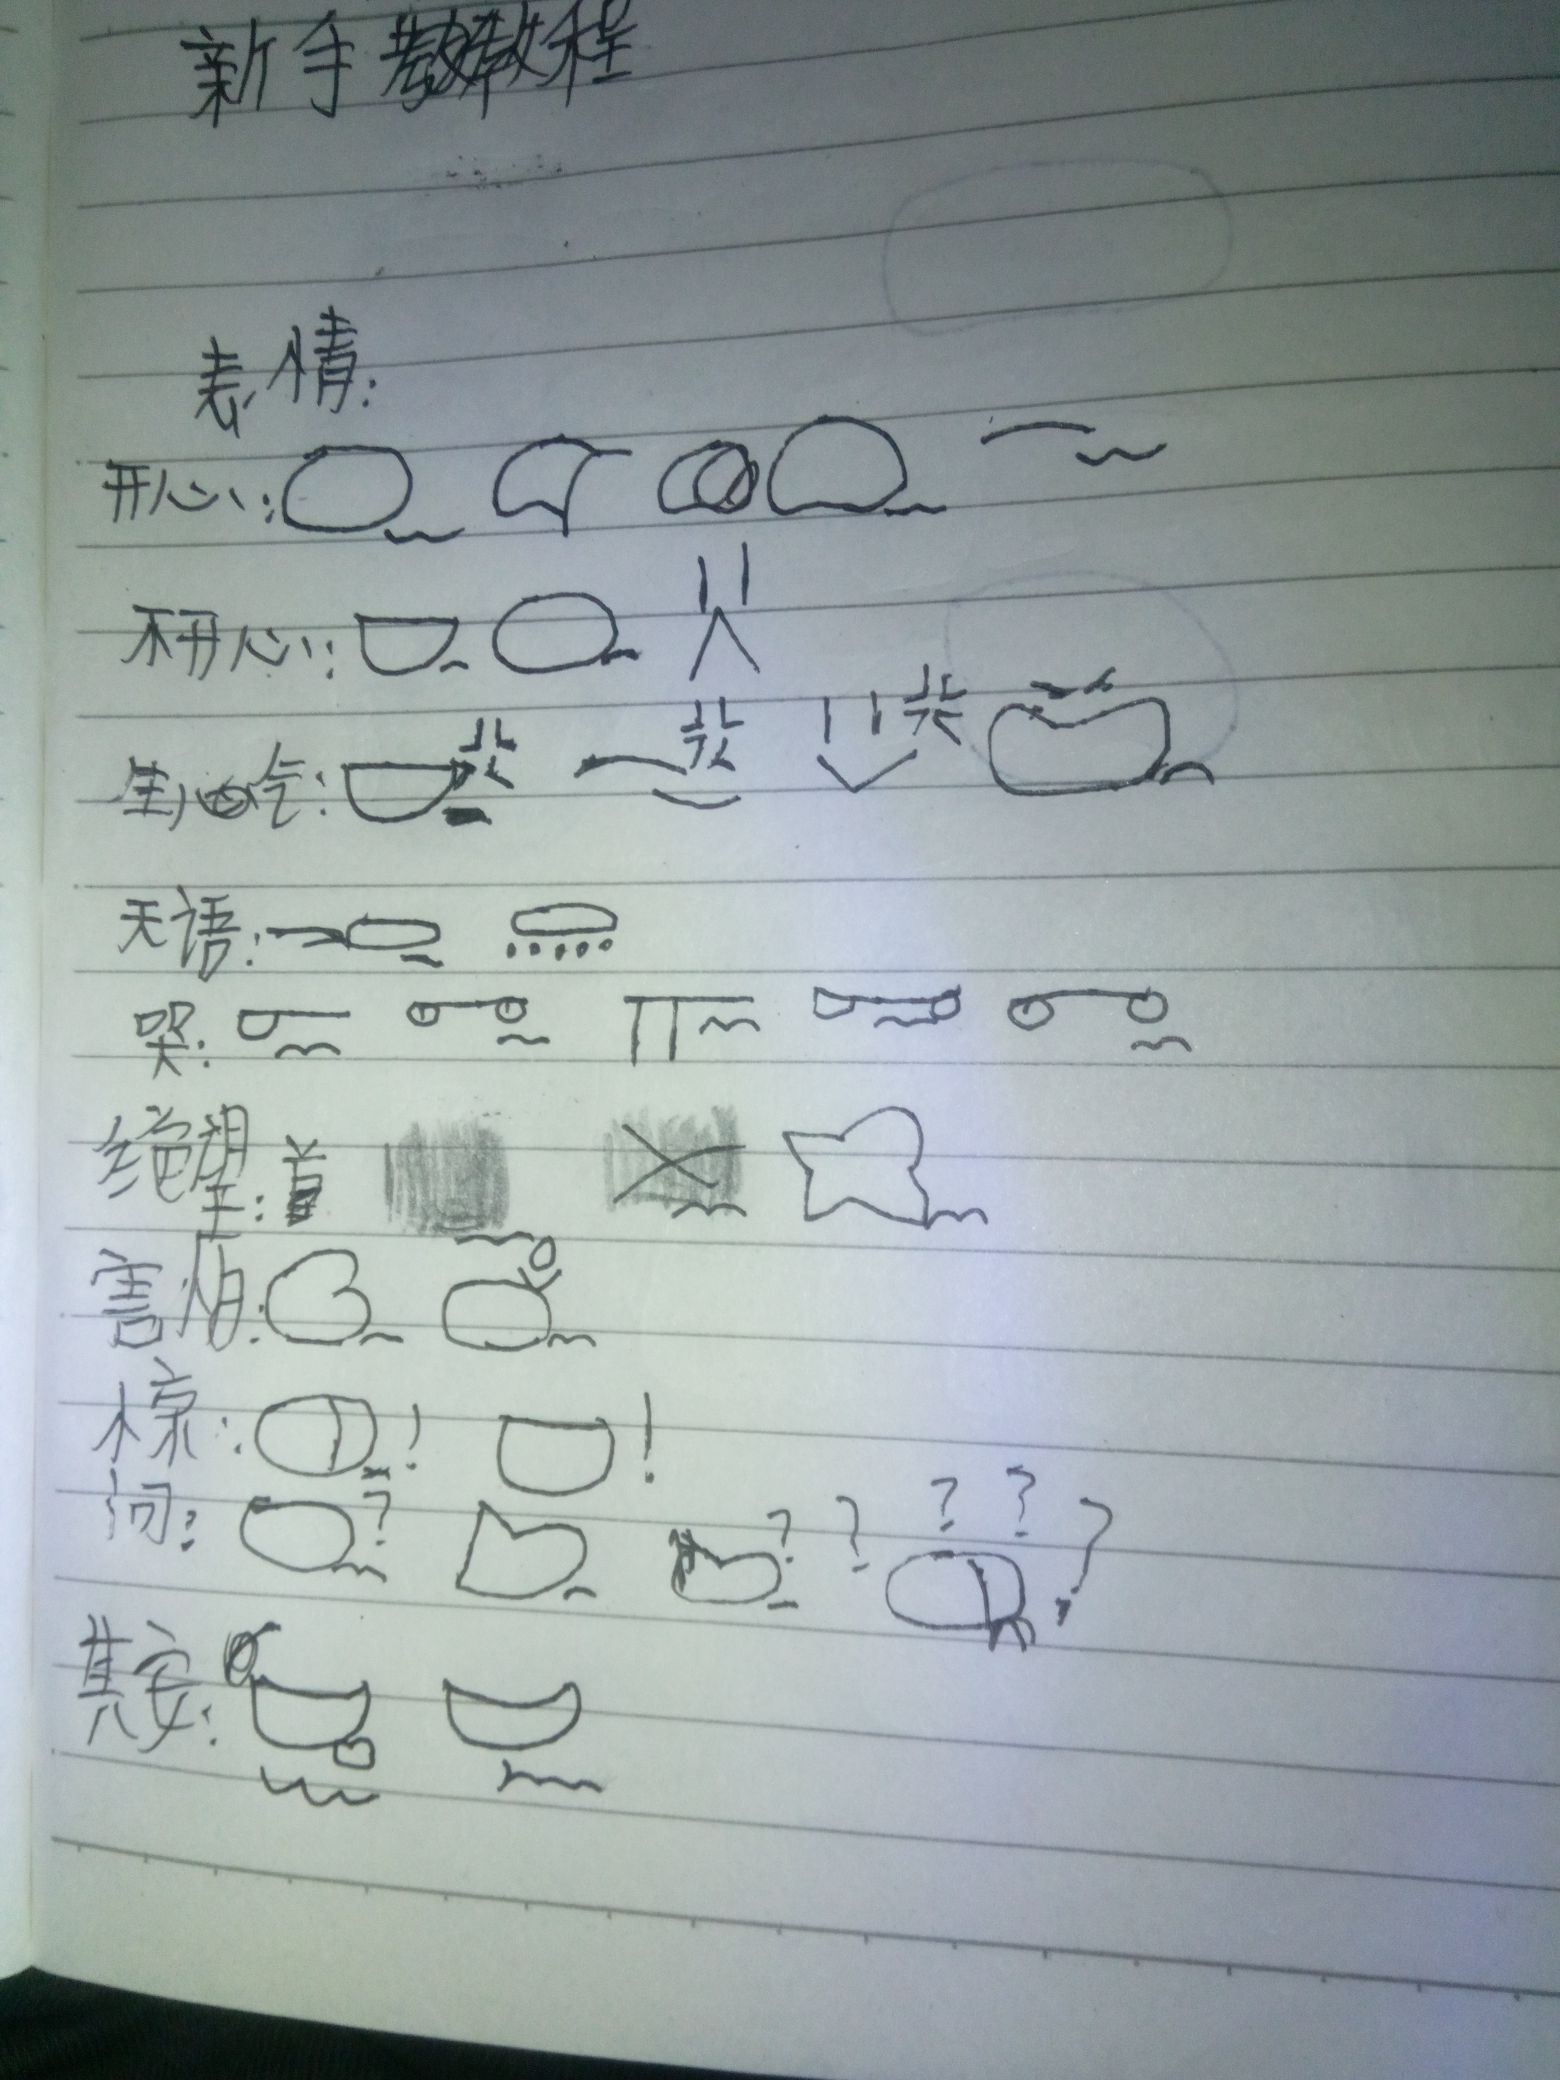 新手教程
表情:
开心:
不开心:
生气:
天语:
哭:
绝望:
害怕:
惊: !  !
问: ? ? ? ? ? ?
其安: